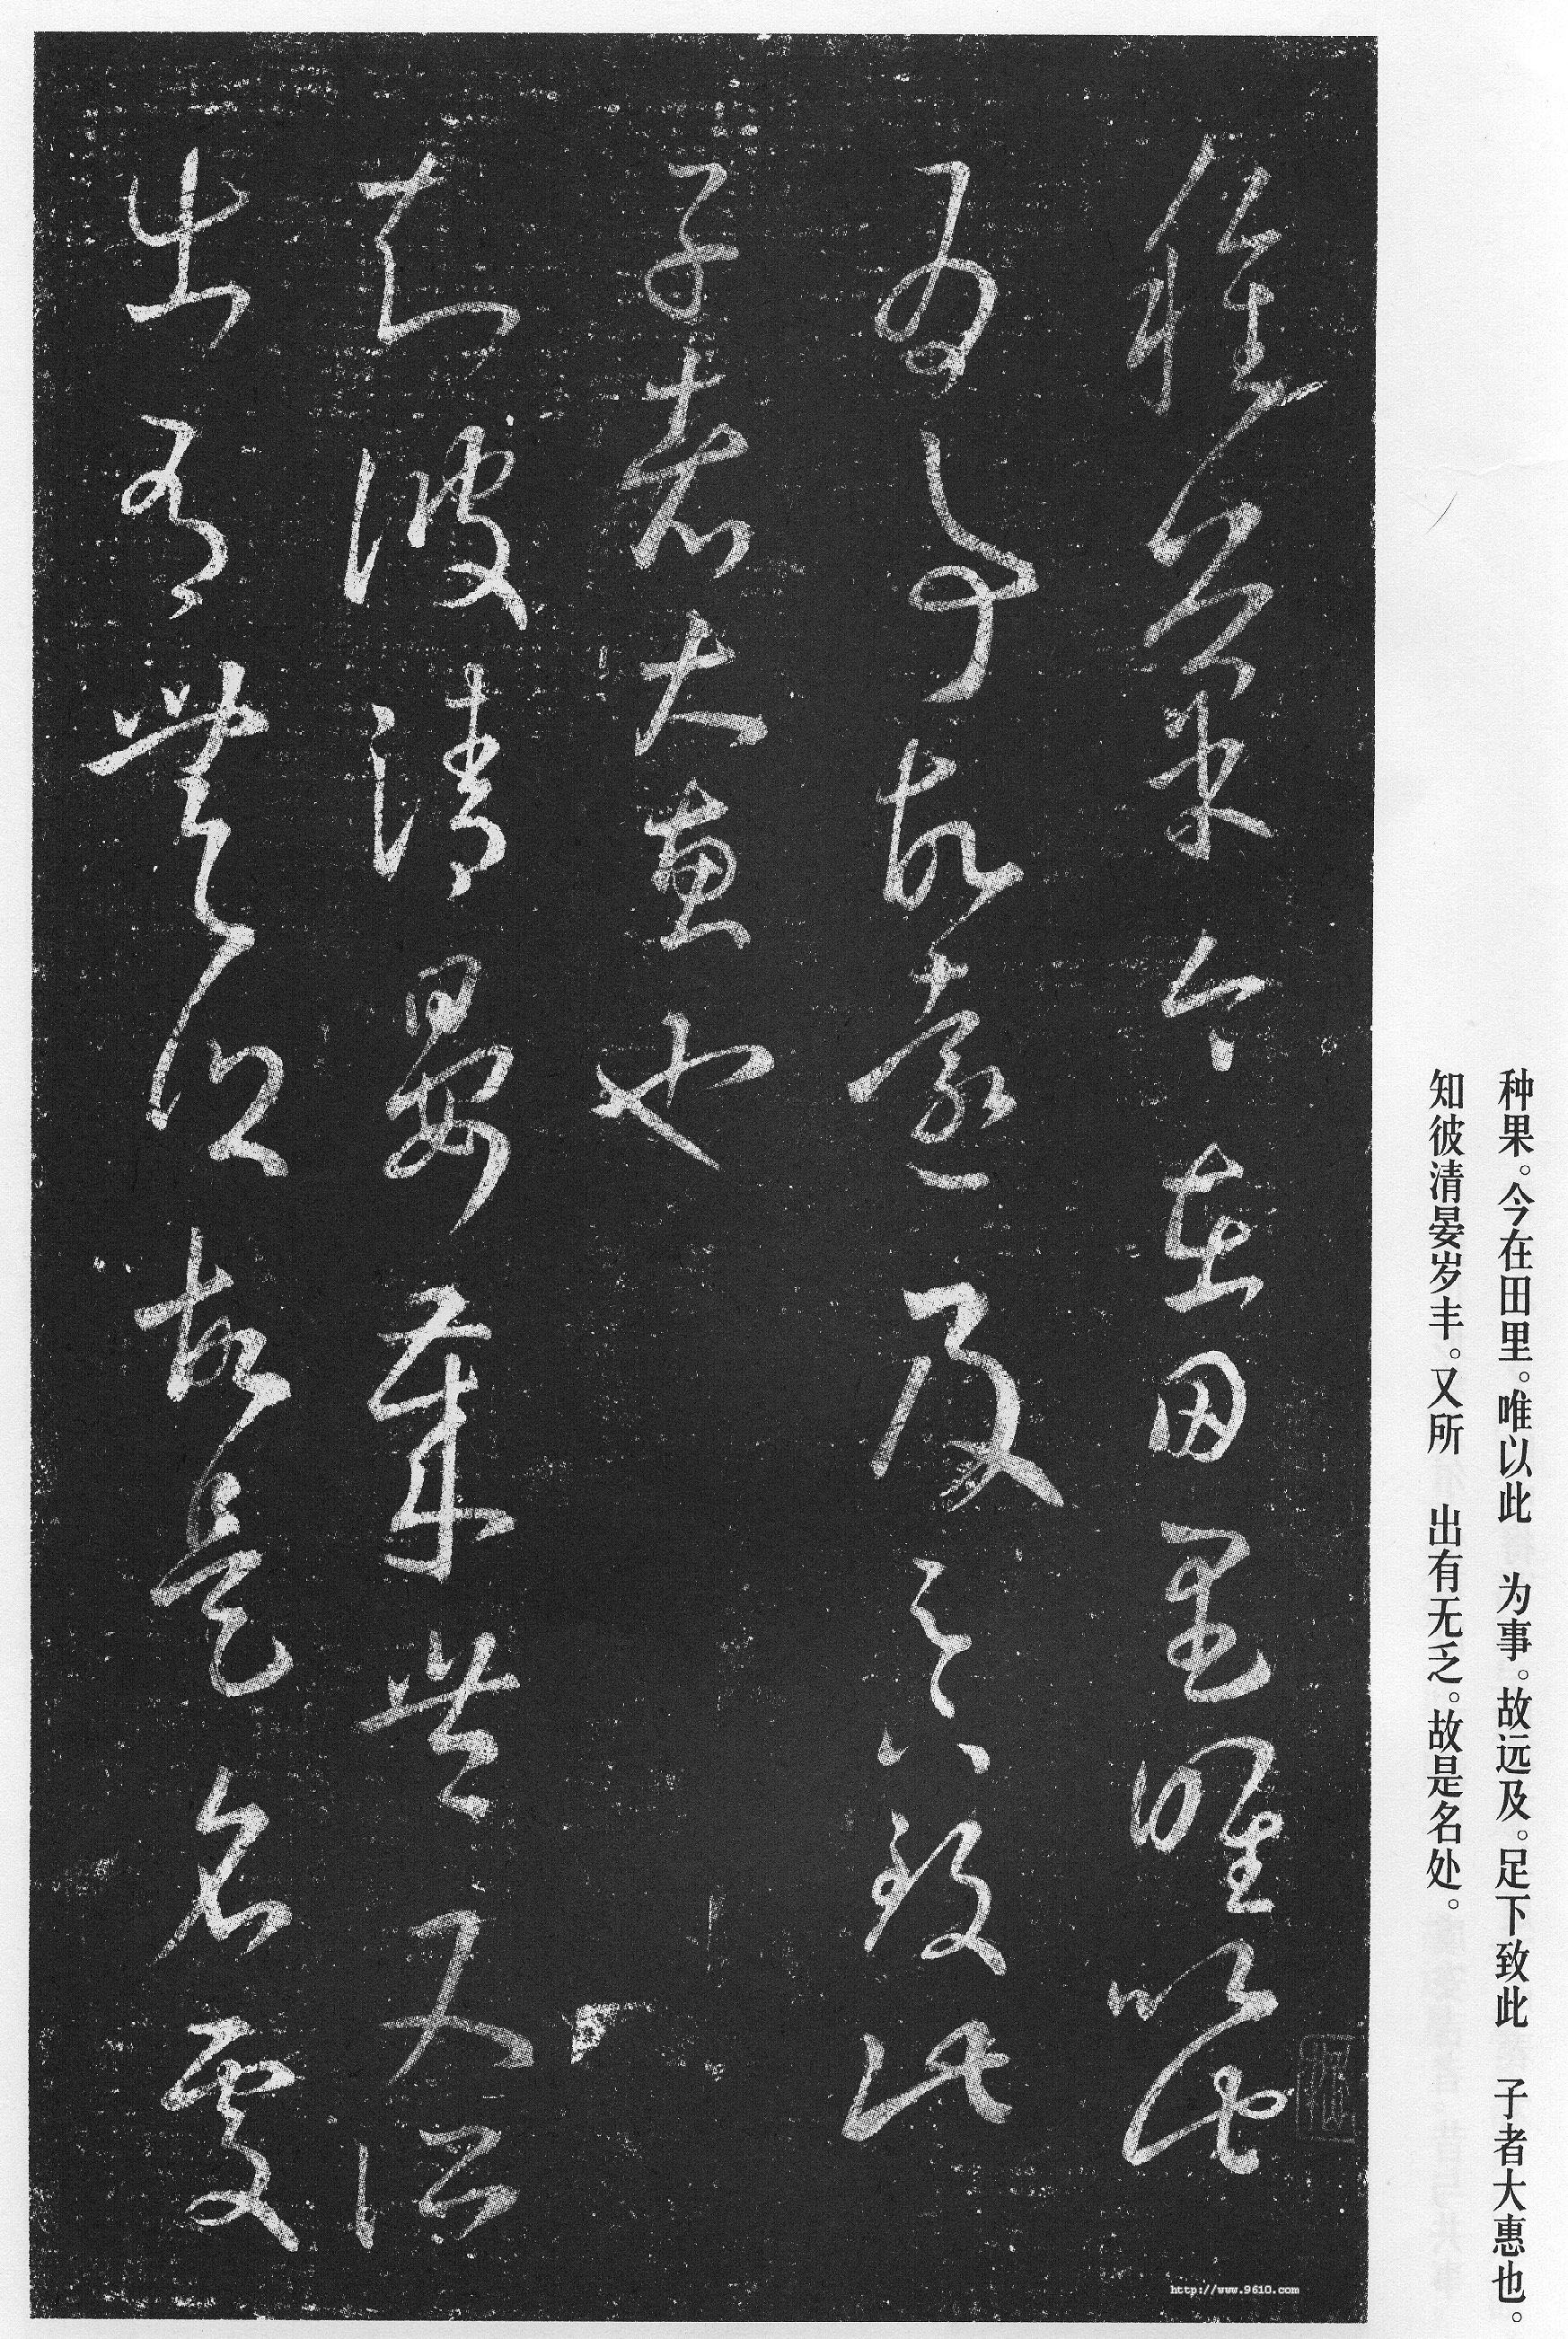 种果。今在田里。唯以此 为事。故远及。足下致此 子者大惠也。
知彼清晏岁丰。又所 出有无乏。故是名处。
種果今在田里唯以此
為事故遠及足下致此
子者大惠也
知彼清晏歲豐又所
出有無乏故是名處
http://www.9610.com